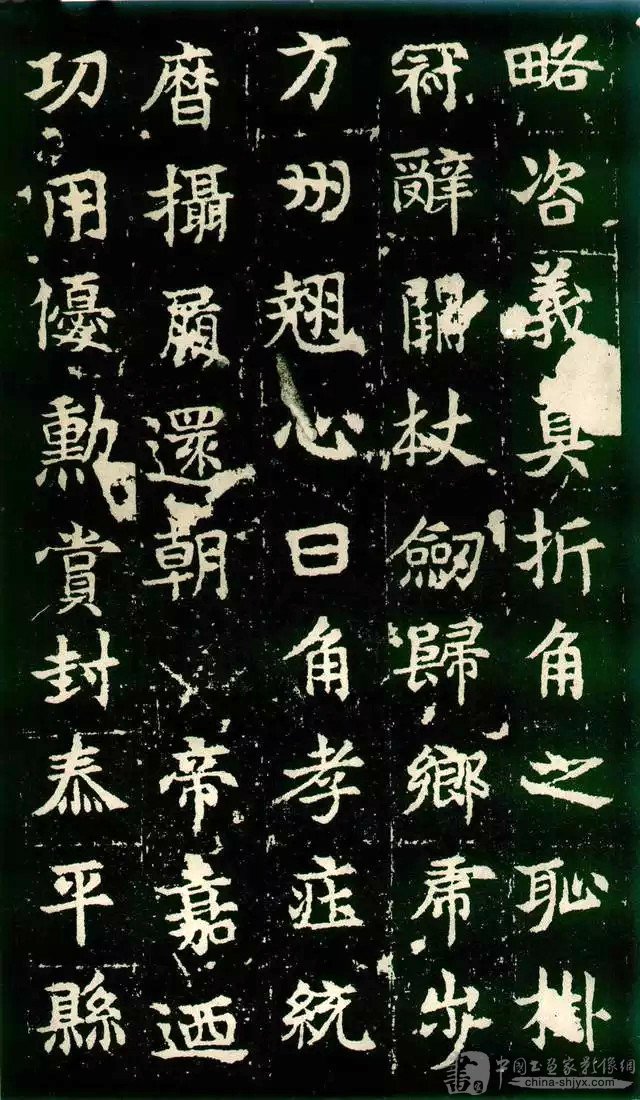 略咨義真折角之恥掛
冠辭闕杖劒歸鄉虎步
方州翹心日角孝莊統
曆攝屐還朝帝嘉迺
功用優勳賞封泰平縣
中国书画家影像網
china-shjyx.com